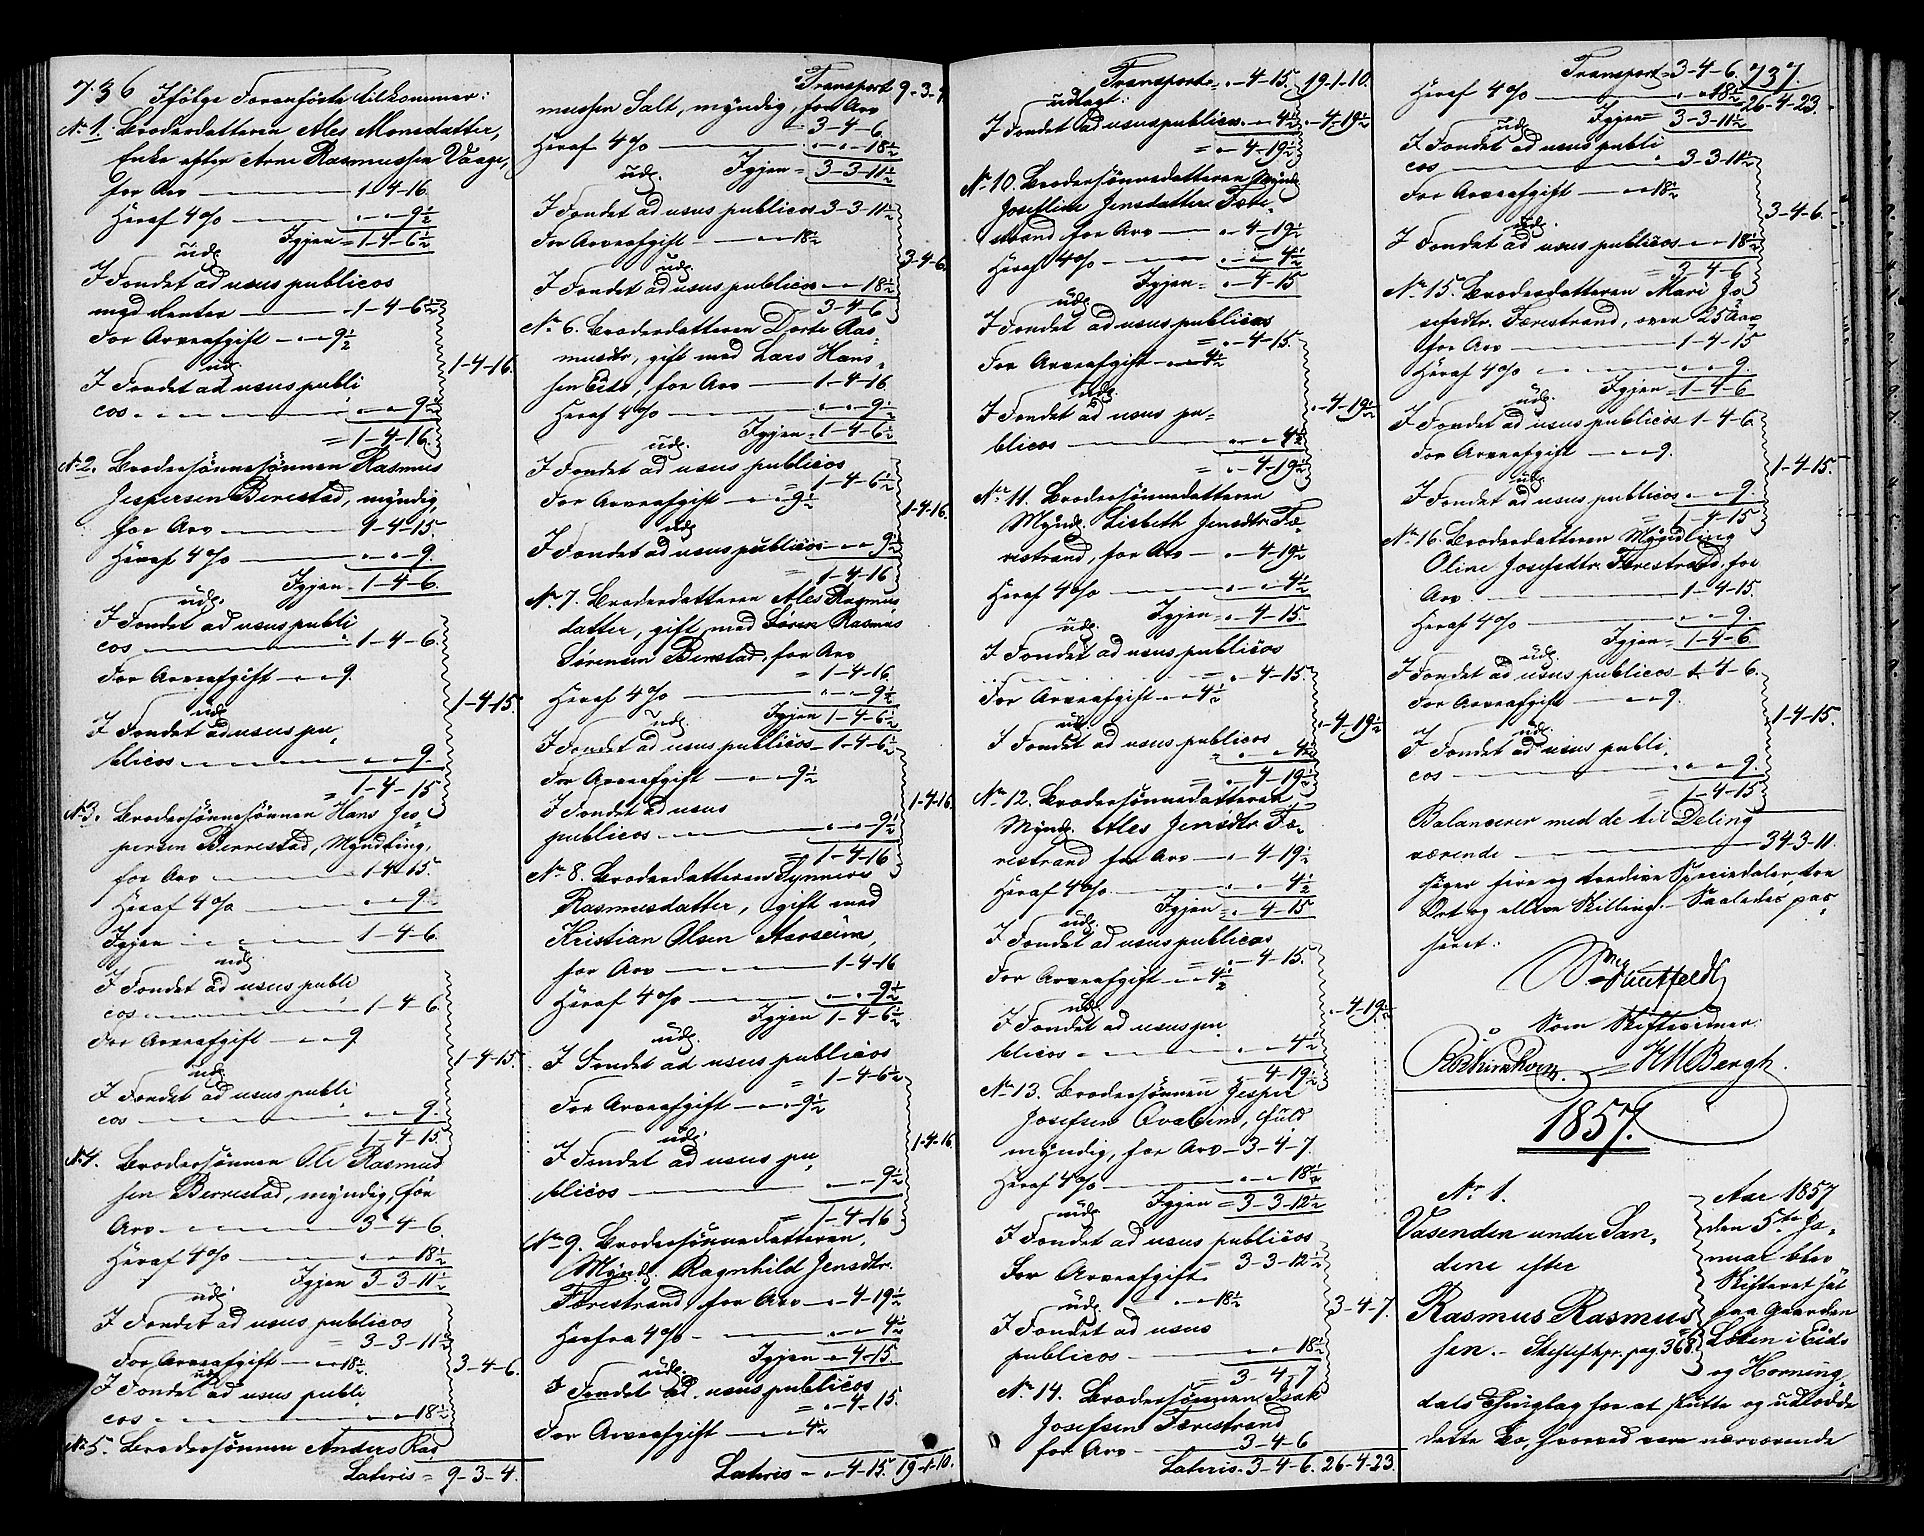 736 Ifølge Foranførte tilkommer:
No 1. Broderdatteren Ales Monsdatter,
Enke efter Arne Rasmussen Vaage,
for Arv 1-4-16.
Heraf 4 0/0 " - " - 9½
Igjen = 1-4-6½
udl.
I Fondet ad usus publicos
med Renter 1-4-6½
For Arveafgift - " - 9½
1-4-16.
udl.
I Fondet ad usus publi
cos " - " - 9½
= 1-4-16.
No 2. Brodersønnesønnen Rasmus
Jespersen Berrestad, myndig,
for Arv 1-4-15.
Heraf 4 0/0 " - " - 9.
Igjen = 1-4-6.
udl.
I Fondet ad usus publi
cos 1-4-6.
For Arveafgift - " - " 9.
1-4-15.
udl.
I Fondet ad usus pu,
blicos " - " - 9.
= 1-4-15
No 3. Brodersønnesønnen Hans Jes,
persen Berrestad, Myndling,
for Arv 1-4-15.
Heraf 4 0/0 " - " - 9
Igjen 1-4-6.
udl.
I Fondet ad usus publi,
cos 1-4-6
For Arveafgift - " - " 9
1-4-15.
udl.
I Fondet ad usus publi,
cos " - " - 9.
1-4-15.
No 4. Brodersønnen Ole Rasmus
sen Berrestad, myndig, for
Arv 3-4-6.
Heraf 4 0/0 " - " - 18½
Igjen 3-3-11½
udl.
I Fondet ad usus publicos
= 3-3-11½
For Arveafgift - " - 18½
3-4-6.
udl.
I Fondet ad usus publi,
cos " - " - 18½
No 5. Brodersønnen Anders Ras,
Lateris = 9-3-4.
Transport 9-3-4
mussen Salt, myndig, for Arv
= 3-4-6
Heraf 4 0/0 " - " - 18½
Igjen = 3-3-11½
udl.
I Fondet ad usus publicos 3-3-11½
For Arveafgift - " - " 18½
3-4-6.
udl.
I Fondet ad usus publicos " - " - 18½
= 3-4-6
No 6. Broderdatteren Dorte Ras-
musdtr, gift med Lars Hans,
sen Eide, for Arv 1-4-16.
Heraf 4 0/0 " - " - 9½
Igjen = 1-4-6½
udl.
I Fondet ad usus publicos
= 1-4-6½
For Arveafgift - " - " 9½
1-4-16.
udl.
I Fondet ad usus publicos " - " - 9½
= 1-4-16
No 7. Broderdatteren Ales Rasmus,
datter, gift med Søren Rasmus
Sørensen Berrstad, for Arv
= 1-4-16
Heraf 4 0/0 " - " - 9½
Igjen 1-4-6½
udl.
I Fondet ad usus publicos 1-4-6½
For Arveafgift - " - " 9½
1-4-16.
I Fondet ad usus
publicos " - " - 9½
= 1-4-16
No 8. Broderdatteren Synneve
Rasmusdatter, gift med
Kristian Olsen Aarseim,
for Arv 1-4-16
Heraf 4 0/0 " - " - 9½
Igjen 1-4-6½
udl.
I Fondet ad usus publicos
= 1-4-6½
For Arveafgift - " - 9½
1-4-16
udl.
I Fondet ad usus pu,
blicos " - " - 9½
= 1-4-16
No 9. Brodersønnedatteren,
Myndl. Ragnhild Jensdtr.
Færestrand, for Arv " - 4-19½
Herfra 4 0/0 " - " - 4½
Igjen " - 4-15
udl.
I Fondet ad usus publicos
= " - 4-15.
For Arveafgift - " - 4½
Lateris " - 4-15. 19-1-10.
Transport " - 4-15. 19-1-10.
udlagt:
I Fondet ad usus publicos " - " - 4½ " - 4-19½
= " - 4-19½
No 10. Brodersønnedatteren Myndl.
Josefline Jensdatter Føre-
strand for Arv " - 4-19½
Heraf 4 0/0 " - " - 4½
Igjen = " - 4-15
udl.
I Fondet ad usus publicos
= " - 4-15.
For Arveafgift - " - 4½
" - 4-19½
udl.
I Fondet ad usus pu-
blicos " - " - 4½
= " - 4-19½
No 11. Brodersønnedatteren
Myndl. Lisbeth Jensdtr. Fæ,
restrand, for Arv " - 4-19½
Heraf 4 0/0 " - " - 4½
Igjen = " - 4-15.
udl.
I Fondet ad usus publicos
" - 4-15.
For Arveafgift - " - 4½
" - 4-19½
udl.
I Fondet ad usus publicos
" - " - 4½
= " - 4-19½
No 12. Brodersønnedatteren
Myndl. Ales Jensdtr. Fæ,
restrand for Arv " - 4-19½
Heraf 4 0/0 " - " - 4½
Igjen = " - 4-15
udl.
I Fondet ad usus publicos
= " - 4-15.
For Arveafgift - " - 4½
" - 4-19½
udl.
I Fondet ad usus pu,
blicos " - " - 4½
= " - 4-19½
No 13. Brodersønnen Jesper
Josefsen Qvalem, fuld
myndig, for Arv 3-4-7.
Heraf 4 0/0 " - " - 18½
Igjen = 3-3-12½
udl.
I Fondet ad usus publicos
= 3-3-12½
For Arveafgift
" - " - 18½
3-4-7.
udl.
I Fondet ad usus
publicos " - " - 18½
= 3-4-7
No 14. Brodersønnen Isak
Josefsen Færestrand
for Arv 3-4-6
Lateris 3-4-6. 26-4-23.
Transport 3-4-6. 737.
26-4-23.
Heraf 4 0/0 " - " - 18½
Igjen = 3-3-11½
udl.
I Fondet ad usus publi
cos 3-3-11½
For Arveafgift - " - " 18½
3-4-6.
udl.
I Fondet ad usus publicos " - " - 18½
= 3-4-6
No 15. Broderdatteren Mari Jo,
sefsdtr. Færestrand, over 25 Aar
for Arv 1-4-15
Heraf 4 0/0 " - " - 9.
Igjen = 1-4-6
udl.
I Fondet ad usus publicos 1-4-6
For Arveafgift - " - " 9.
1-4-15.
udl.
I Fondet ad usus publicos " - " - 9
= 1-4-15
No 16. Broderdatteren Myndling
Oline Josefsdtr. Færestrand, for
Arv 1-4-15.
Heraf 4 0/0 " - " - 9.
Igjen = 1-4-6
udl.
I Fondet ad usus publicos 1-4-6.
For Arveafgift - " - " 9.
1-4-15.
udl.
I Fondet ad usus publi,
cos " - " - 9.
= 1-4-15
Balancerer med de til Deling
værende 34-3-11.
siger fire og tredive Speciedaler, tre
Ort og elleve Skilling. Saaledes pas,
seret:
Huitfeldt
Som Skiftevidner:
HM Bergh.
1857.
No 1.
Vasenden under San,
dene efter
Rasmus Rasmus
sen. - Skiftefkpr. pag. 368.
Aar 1857
den 5te Ja,
nuar blev
Skifteret sat
paa Gaarden
Løken i Eids
og Horning,
dals Thinglag for at slutte og udlodde
dette Bo, hvorved vare nærværende